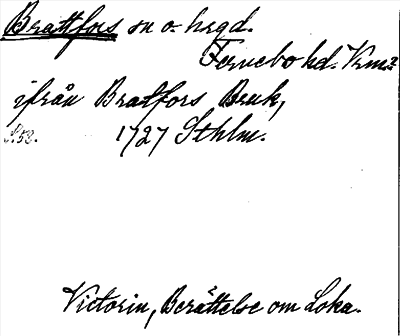 Brattfors sn o. hrgd.
Fernebo hd. Vrml.
ifrån Bratfors Bruk,
S. 58. 1727 Sthlm.
Victorin, Berättelse om Loka.